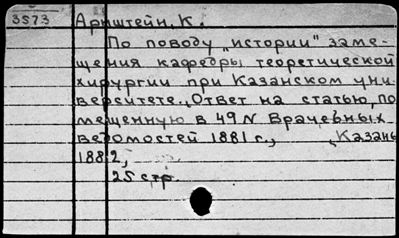 3573
Арнштейн, К.
По поводу "истории" заме-
щения кафедры теоретической
хирургии при Казанском уни-
верситете., Ответ на статью, по
мещенную в 49 N Врачебных
ведомостей 1881 г., Казань
1882,
25 стр.